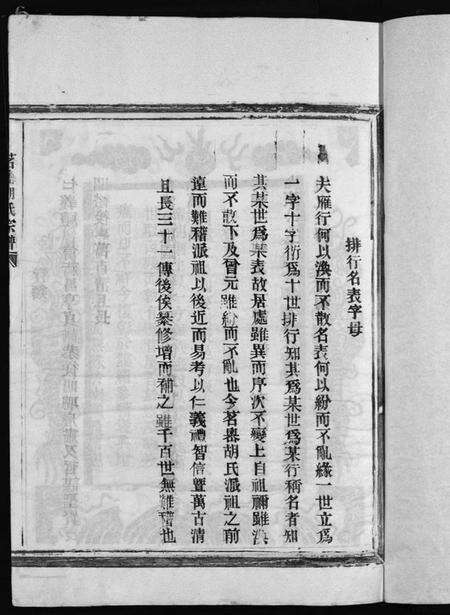 排行名表字母
夫雁行何以渙而不散名表何以紛而不亂緣一世立爲
一字十字衍爲十世排行知其爲某世爲某行稱名者知
其某世爲某表故居處雖異而序次不變上自祖禰雖渙
而不散下及曾元雖紛而不亂也今茗嶴胡氏派祖之前
遠而難稽派祖以後近而易考以仁義禮智信豐萬古清
且長三十一傳後俟纂修增而補之雖千百世無難稽也
胡氏宗譜